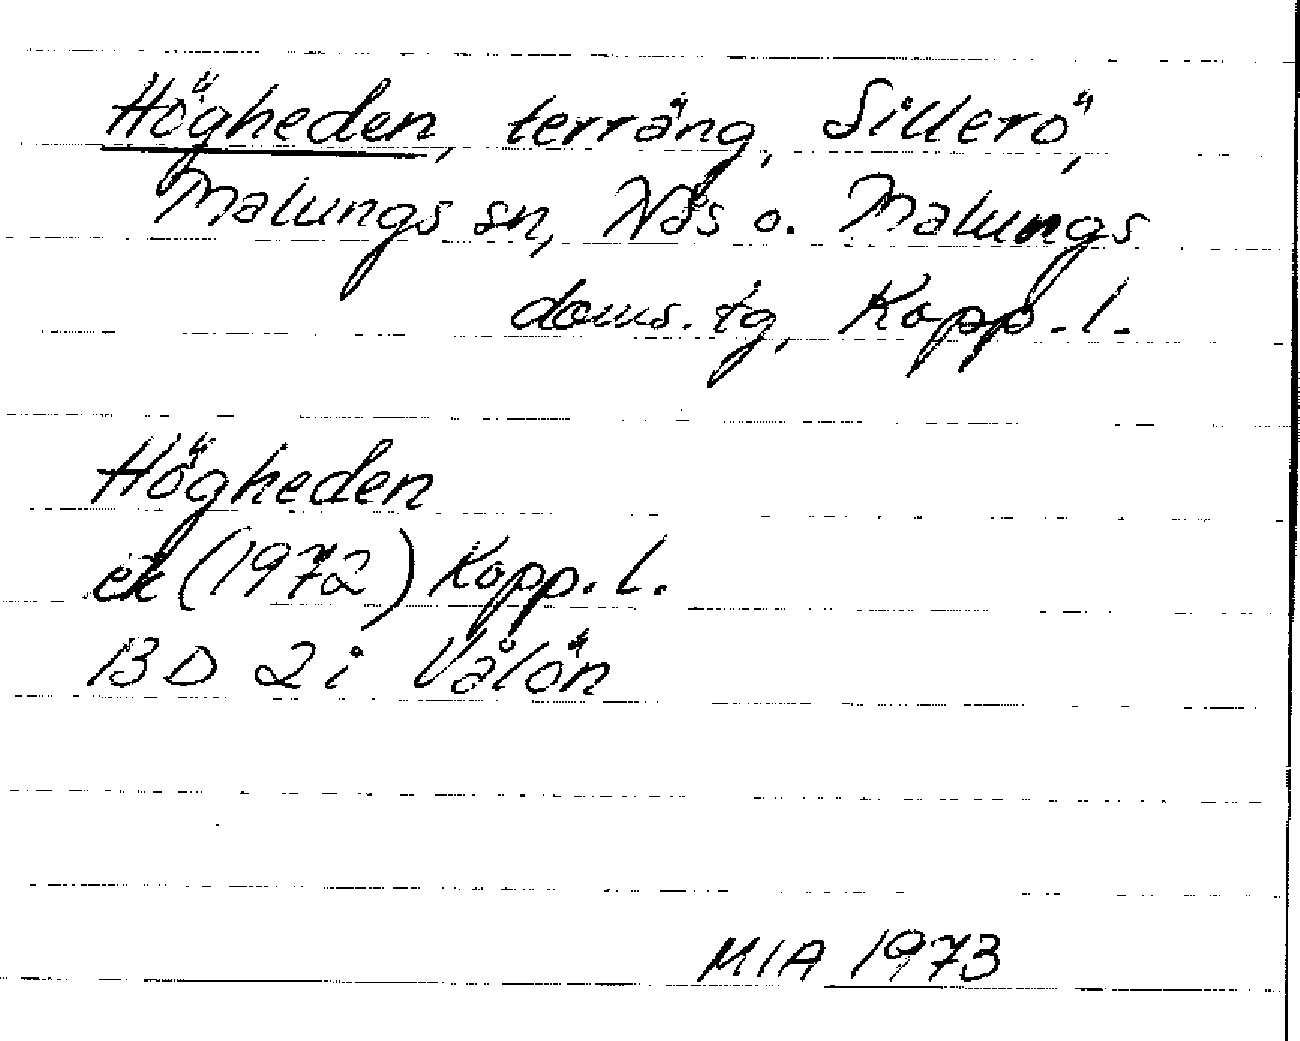 Högheden, terräng, Sillerö,
Malungs sn, Nås o. Malungs
doms. tg, Kopp. l.
Högheden
ek (1972) Kopp. l.
13 D 2 i Vålön
MIA 1973